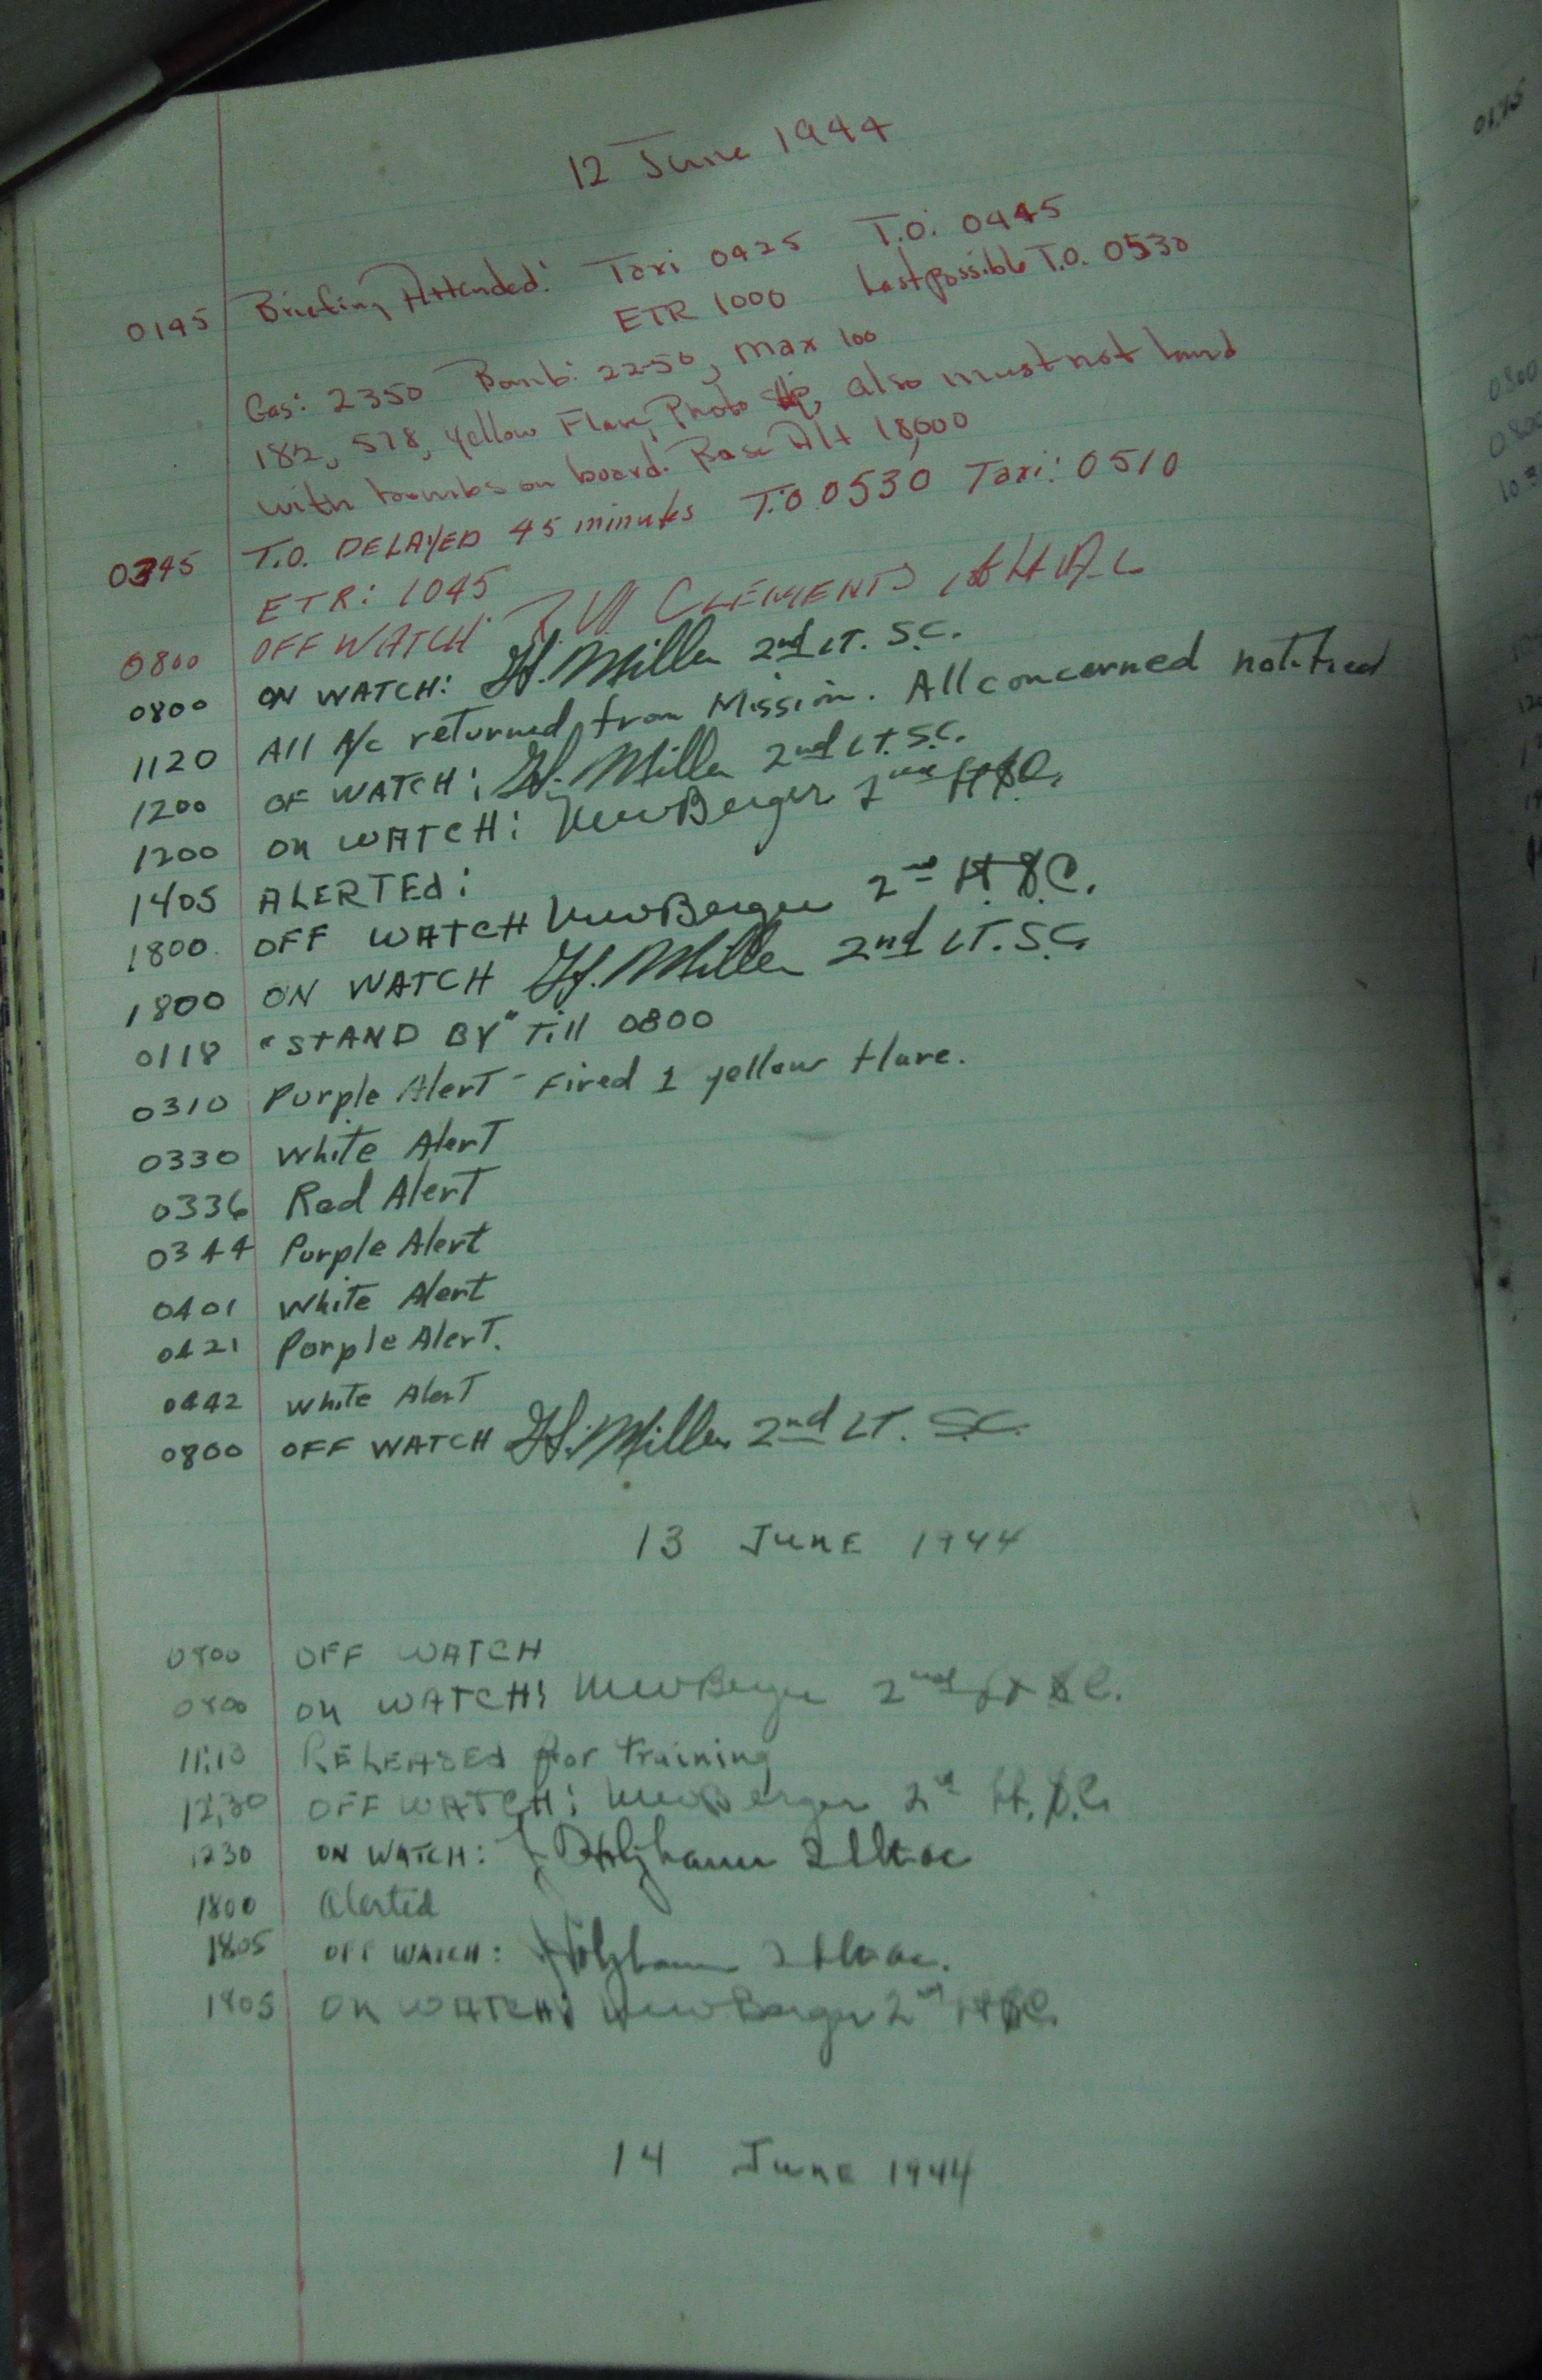 12 June 1944
0145 Briefing Attended: Taxi 0425 T.O. 0445
ETR 1000 Last possible T.O. 0530
Gas: 2350 Bomb: 2250, Max 100
182, 578, Yellow Flare, Photo also must not land
with bombs on board. Base Alt 18,000
0345 T.O. DELAYED 45 minutes T.O. 0530 Taxi: 0510
ETR: 1045
0800 OFF WATCH: CLEMENTS
0800 ON WATCH: H. Miller 2nd LT. S.C.
1120 All A/c returned from Mission. All concerned notified
1200 OF WATCH: H. Miller 2nd LT. S.C.
1200 ON WATCH: Berger 2nd Lt SC.
1405 ALERTEd:
1800 OFF WATCH Berger 2nd Lt S.C.
1800 ON WATCH H. Miller 2nd LT. S.C.
0118 "STAND BY" Till 0800
0310 Purple Alert - Fired 1 yellow flare.
0330 White Alert
0336 Red Alert
0344 Purple Alert
0401 White Alert
0421 Purple Alert.
0442 White Alert
0800 OFF WATCH H. Miller 2nd LT. S.C.
13 JUNE 1944
0800 OFF WATCH
0800 ON WATCH: Berger 2nd Lt SC.
11:13 RELEASEd for Training
12,30 OFF WATCH: Berger 2nd Lt. S.C.
1230 ON WATCH: Holzhauer
1800 Alerted
1805 OFF WATCH: Holzhauer
1805 ON WATCH: Berger 2nd Lt SC.
14 JUNE 1944
0145
0800
0800
103